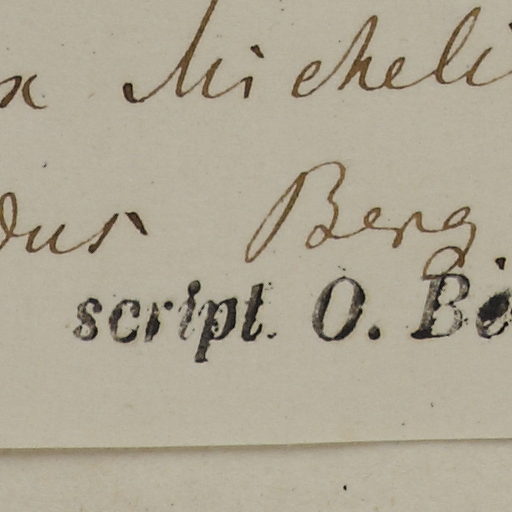 x Micheli
dus Berg
script. O. Bö